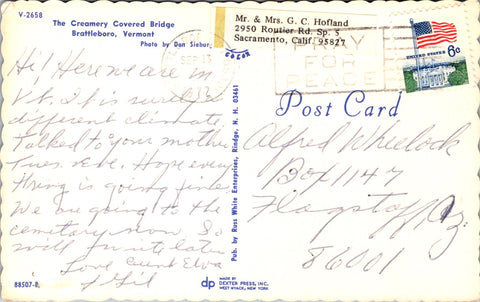 V-2658
The Creamery Covered Bridge
Brattleboro, Vermont
Photo by Dan Siebur
COLOR
Mr. & Mrs. G. C. Hofland
2950 Routier Rd. Sp. 5
Sacramento, Calif. 95827
PRAY
FOR
PEACE
UNITED STATES
6c
Hi! Here we are in
Vt. It is surely a
different climate,
Talked to your mother
Tues. Eve. Hope every
thing is going fine.
We are going to the
cemetary now. So
will write later
Love Aunt Elva
& Gil
Pub. by Russ White Enterprises, Rindge, N. H. 03461
Post Card
Alfred Wheelock
Box 1147
Flagstaff, Az.
86001
88507-B
dp
MADE BY
DEXTER PRESS, INC.
WEST NYACK, NEW YORK